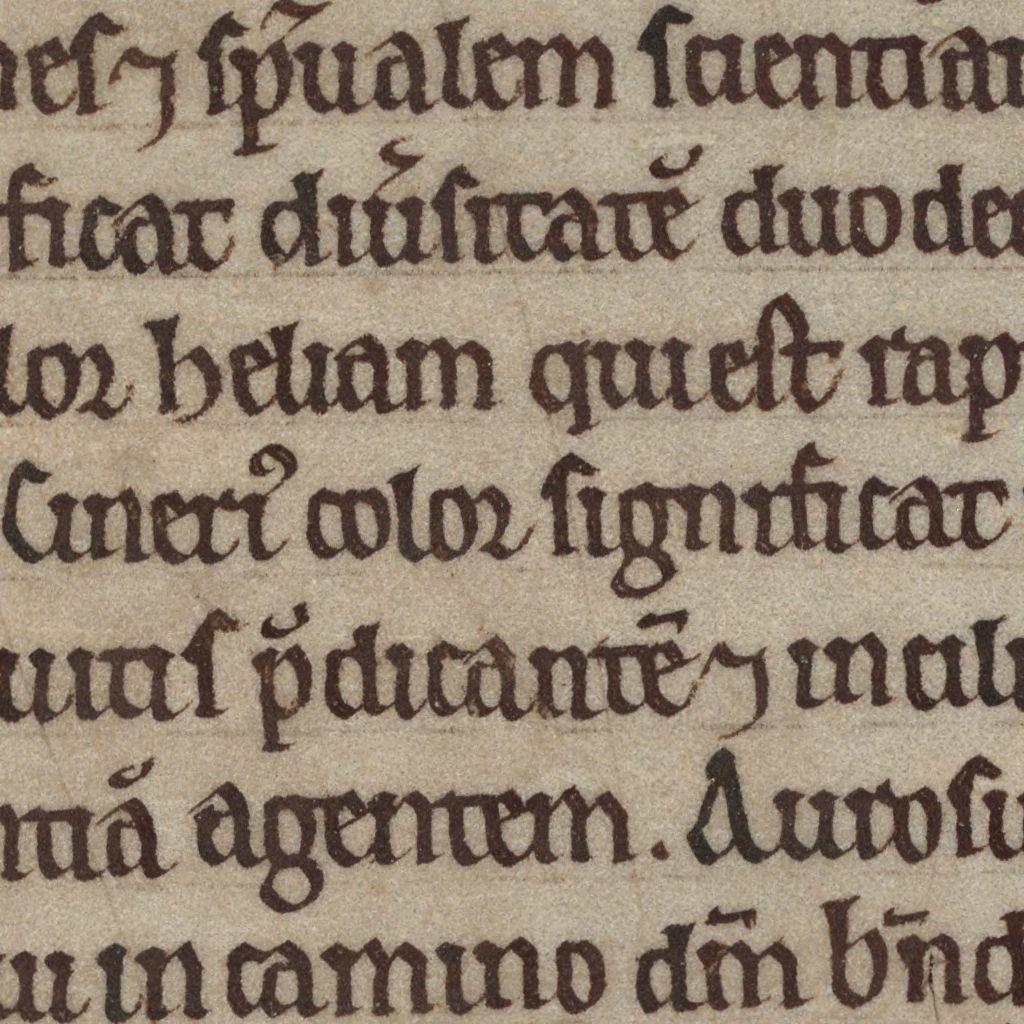 nes ⁊ sp̃ualem scientiam
ficat diũsitatẽ duodec
lor heliam qui est rap
Cineriꝰ color significat
uitis p̃dicantẽ ⁊ in cili
ntiã agentem. Aurosu
iu in camino dm̃ bñd